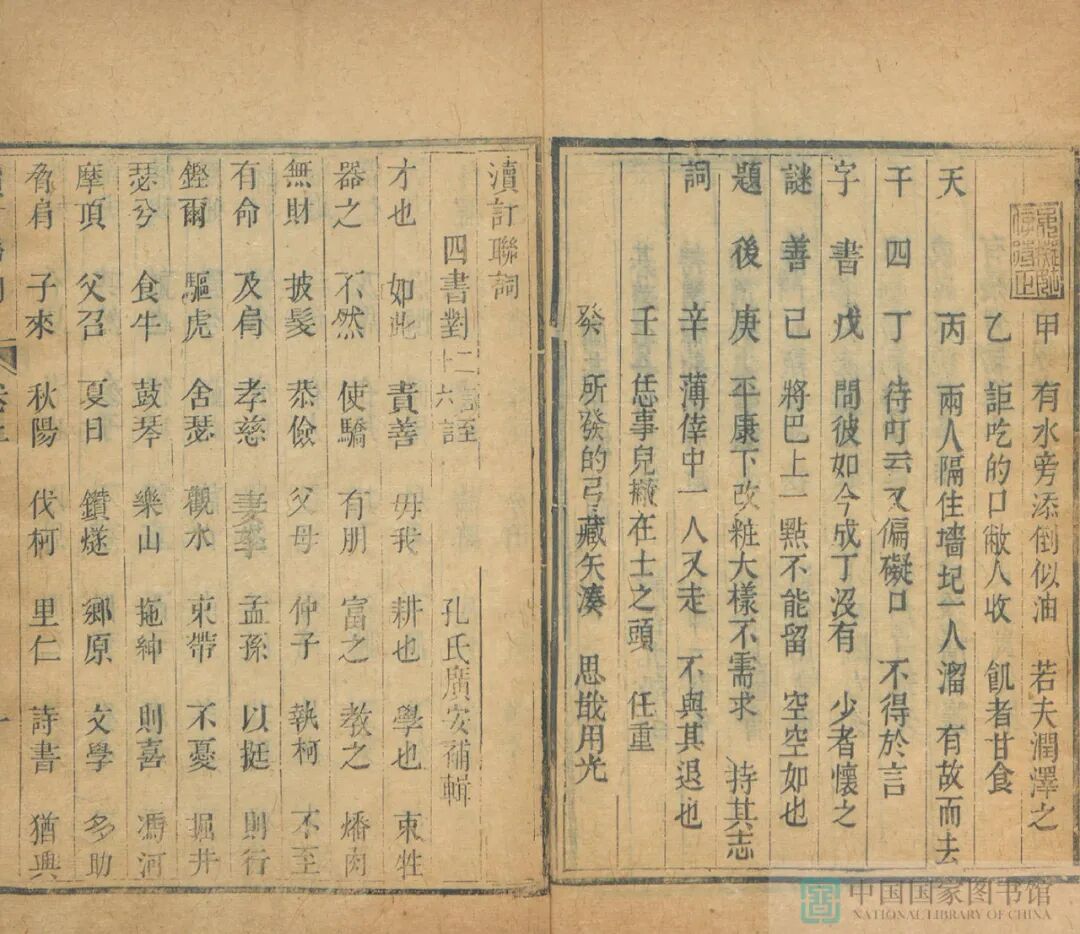 甲 有水旁添倒似油 若夫潤澤之
乙 詎吃的口敝人收 飢者甘食
天 丙 兩人隔住墻圮一人溜 有故而去
干 四 丁 待叮云又偏礙口 不得於言
字 書 戊 問彼如今成丁沒有 少者懷之
謎 善 己 將巴上一點不能留 空空如也
題 後 庚 平康下改粧大樣不需求 持其志
詞 辛 薄倖中一人又走 不與其退也
壬 恁事兒撇在士之頭 任重
癸 所發的弓藏矢湊 思戢用光
瀆訂聯詞
四書對 孔氏廣安補輯
才也 如此 責善 毋我 耕也 學也 東牲
器之 不然 使驕 有朋 富之 教之 燔肉
無財 披髮 恭儉 父母 仲子 執柯 不至
有命 及肩 孝慈 妻孥 孟孫 以挺 則行
鏗爾 驅虎 舍瑟 觀水 束帶 不憂 掘井
瑟兮 食牛 鼓琴 樂山 拖紳 則喜 馮河
摩頂 父召 夏日 鑽燧 鄉原 文學 多助
脅肩 子來 秋陽 伐柯 里仁 詩書 猶興
中国国家图书馆
NATIONAL LIBRARY OF CHINA